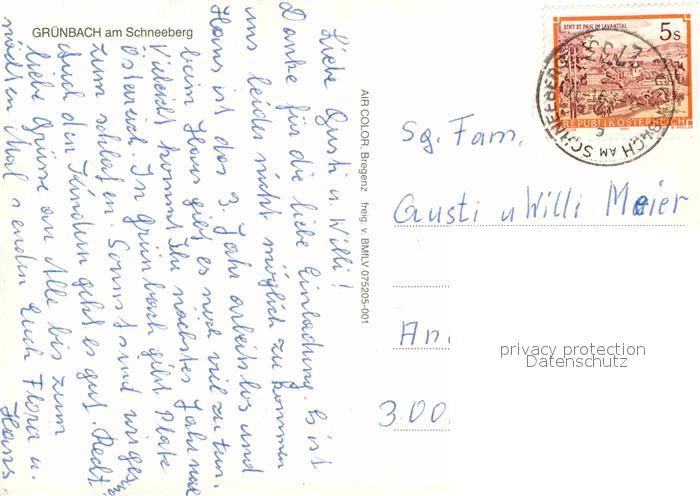 GRÜNBACH am Schneeberg
Liebe Gusti u. Willi!
Danke für die liebe Einladung. Es ist
uns leider nicht möglich zu kommen
Hans ist das 3. Jahr arbeitslos und
beim Haus gibt es noch viel zu tun.
Vieleicht kommt Ihr nächstes Jahr nach
Österreich. In Grünbach gibt Platz
zum schlafen. Sonst sind wir ges.
Auch den Kindern geht es gut. Recht
liebe Grüße an Alle bis zum
nächsten Mal senden Euch Flora u.
Hans
AIR COLOR, Bregenz freig. v. BMfLV 075205-001
STIFT ST. PAUL IM LAVANTTAL
5 s
REPUBLIK ÖSTERREICH
2733
GRÜNBACH AM SCHNEEBERG
Sg. Fam.
Gusti u Willi Meier
An
3.00
privacy protection
Datenschutz